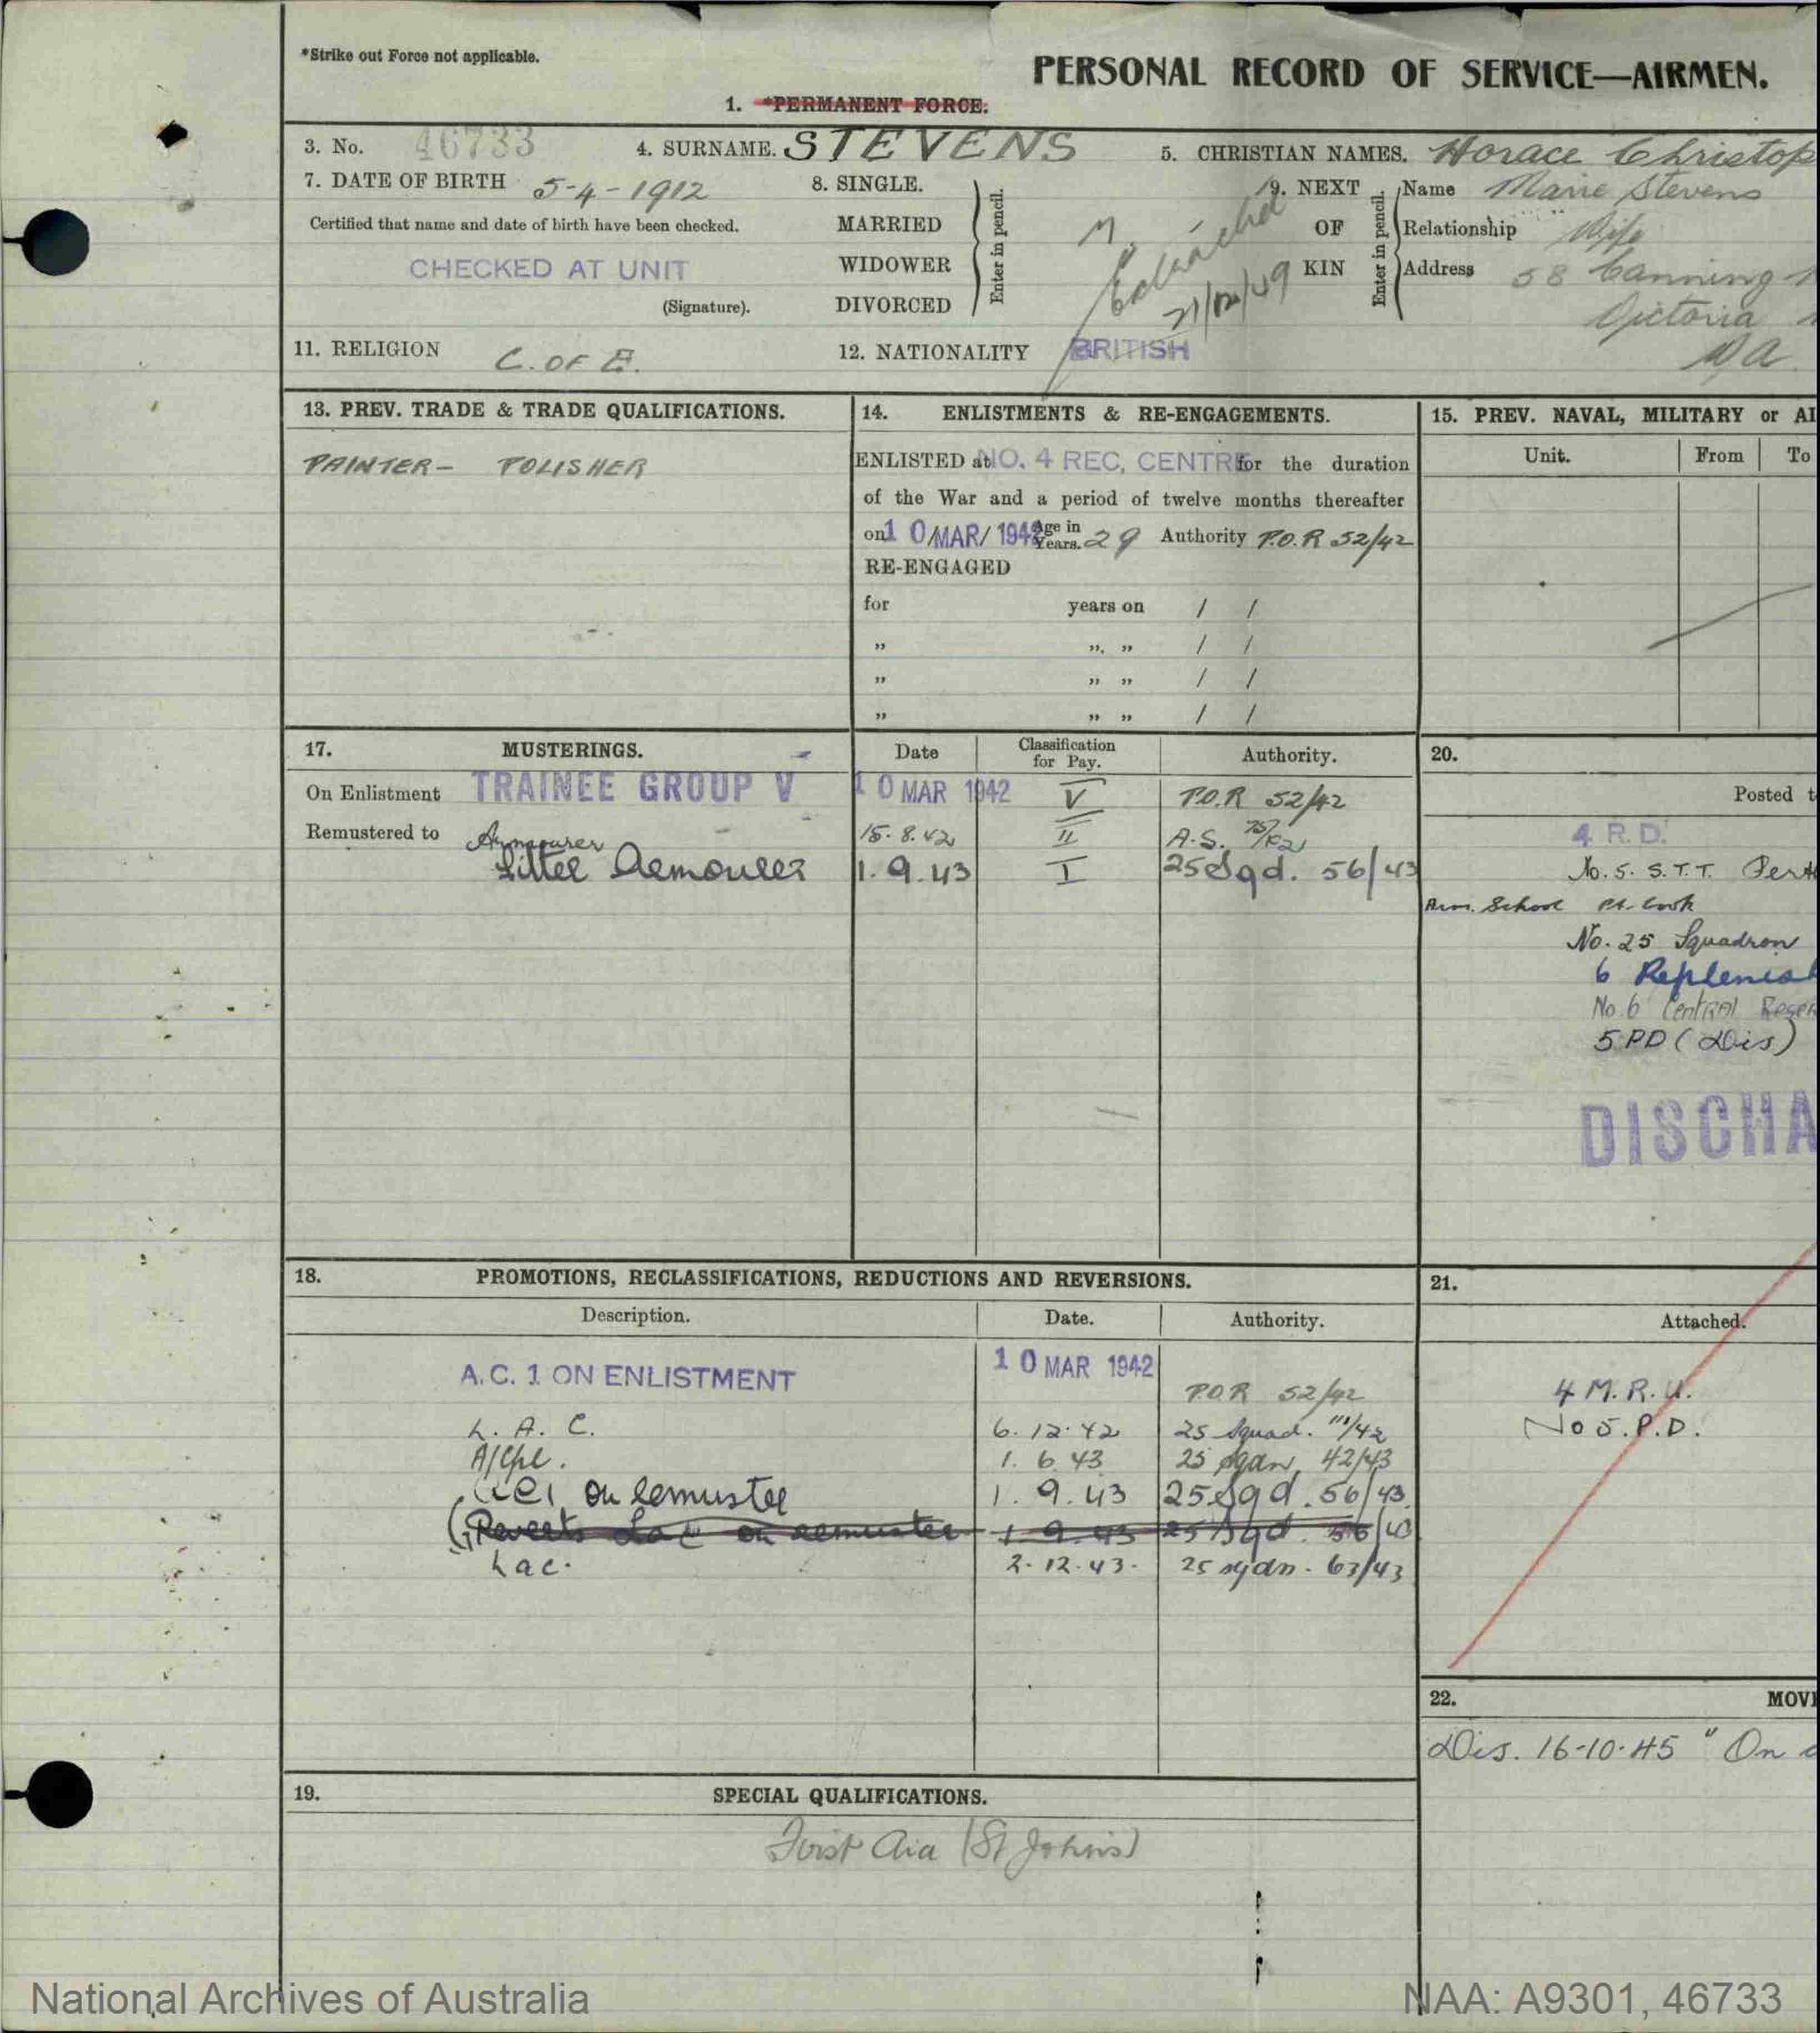 *Strike out Force not applicable.
PERSONAL RECORD OF SERVICE—AIRMEN.
1. *PERMANENT FORCE.
3. No. 46733 4. SURNAME. STEVENS 5. CHRISTIAN NAMES. Horace Christop
7. DATE OF BIRTH 5-4-1912 8. SINGLE. 9. NEXT Name Marie Stevens
Certified that name and date of birth have been checked. MARRIED M. OF Relationship Wife
CHECKED AT UNIT WIDOWER KIN Address 58 Canning
Enter in pencil. Enter in pencil.
(Signature). DIVORCED 21/12/49 Victoria
11. RELIGION C. OF E. 12. NATIONALITY BRITISH WA
13. PREV. TRADE & TRADE QUALIFICATIONS. 14. ENLISTMENTS & RE-ENGAGEMENTS. 15. PREV. NAVAL, MILITARY or AI
Unit. From To
PAINTER- POLISHER ENLISTED at NO. 4 REC. CENTRE for the duration
of the War and a period of twelve months thereafter
on 10/MAR/1942 Age in Years. 29 Authority P.O.R 52/42
RE-ENGAGED
for years on / /
" ", " / /
" " " / /
" " " / /
17. MUSTERINGS. Date Classification for Pay. Authority. 20.
On Enlistment TRAINEE GROUP V 10 MAR 1942 V P.O.R 52/42 Posted t
Remustered to Armourer 15.8.42 II A.S. 4 R.D.
Fitter Armourer 1.9.43 I 25 Sqd. 56/43 No. 5. S.T.T. Pert
Arm. School Pt. Cook
No. 25 Squadron
6 Replenis
No. 6 Central Reser
5 PD (Dis)
DISCHA
18. PROMOTIONS, RECLASSIFICATIONS, REDUCTIONS AND REVERSIONS. 21.
Description. Date. Authority. Attached.
A.C. 1 ON ENLISTMENT 10 MAR 1942 P.O.R 52/42 4 M.R.U.
L. A. C. 6.12.42 25 Squad. 111/42 No 5.P.D.
A/Cpl. 1.6.43 25 Sqdn 42/43
on remuster 1.9.43 25 Sqd. 56/43
(Reverts Lac on remuster 1.9.43 25 Sqd. 56/43
Lac. 2.12.43. 25 sqdn. 63/43
22. MOVE
Dis. 16-10-45 "On
19. SPECIAL QUALIFICATIONS.
First Aid (St Johns)
National Archives of Australia NAA: A9301, 46733